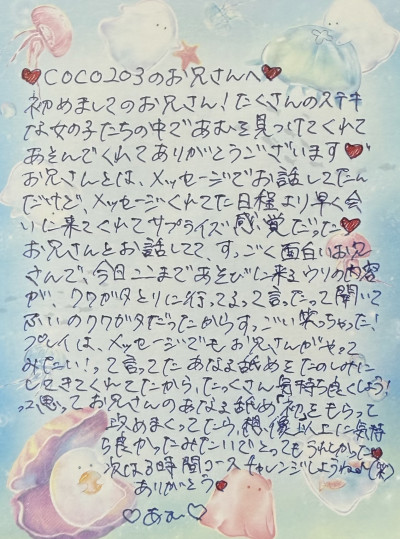 ♥COCO203のお兄さんへ♥
初めましてのお兄さん!たくさんのステキ
な女の子たちの中であむを見つけてくれて
あそんでくれてありがとうございます♥
お兄さんとは、メッセージでお話してたん
だけど、メッセージくれてた日程より早く会
いに来てくれてサプライズ感覚だった♥
お兄さんとお話してて、すっごく面白いお兄
さんで、今日ここまであそびに来るウソの内容
が、クワガタとりに行ってるって言ったって聞いて
ぶいのクワガタだったからすっごい笑っちゃった!
プレイは、メッセージでもお兄さんがやって
みたい!って言ってたあなる舐めをたのしみに
してきてくれてたから、たっくさん気持ち良くしよう!
って思ってお兄さんのあなる舐め「初」をもらって
攻めまくってたら、想像以上に気持
ち良かったみたいでとってもうれしかった♥
次は3時間コースチャレンジしようねん(笑)
ありがとう♥
♡あむ♡